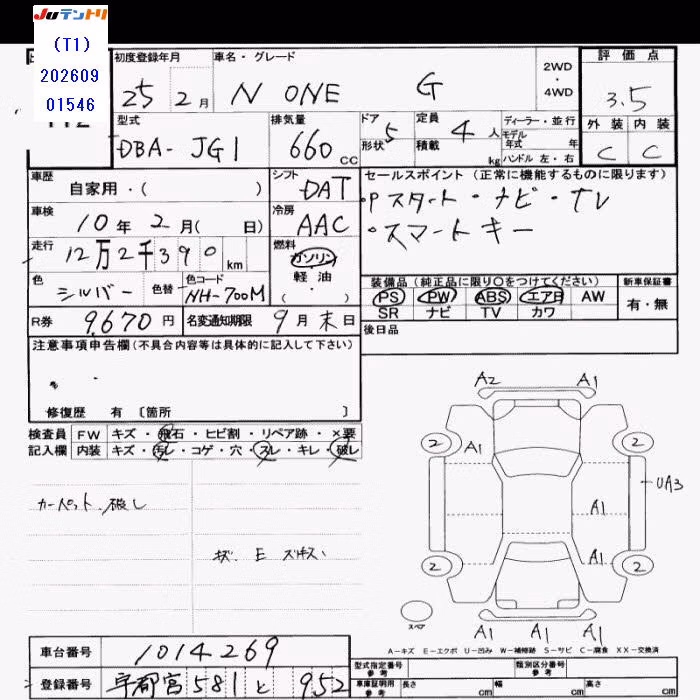 JUテントリ
(T1)
202609
01546
初度登録年月 車名・グレード 2WD・4WD 評価点
25 2月 N ONE G 3.5
型式 排気量 ドア形状 定員積載 ディーラー・並行 外装 内装
DBA-JG1 660cc 5 4人 kg モデル年式 年 ハンドル 左・右 C C
車歴 シフト セールスポイント(正常に機能するものに限ります)
自家用・( ) DAT ・Pスタート・ナビ・TV
車検 冷房 ・スマートキー
10年2月( 日) AAC
走行 12万2千390km 燃料 ガソリン 軽・油
色 シルバー 色替 色コード NH-700M ( ・ )
装備品(純正品に限り○をつけてください) 新車保証書
PS PW ABS エアB AW 有・無
SR ナビ TV カワ
R券 9,670円 名変通知期限 9月末日 後日品
注意事項申告欄(不具合内容等は具体的に記入して下さい)
修復歴 有 [箇所 ]
検査員 FW キズ・飛石・ヒビ割・リペア跡・×要
記入欄 内装 キズ・汚レ・コゲ・穴・スレ・キレ・破レ
カーペット破レ
A2 A1
2 2
A1
UA3
A1
A1
2 2
A1 A1 A1
スペア
A-キズ E-エクボ U-凹み W-補修跡 S-サビ C-腐食 XX-交換済
車台番号 1014269
登録番号 宇都宮 581 と 952
型式指定番号 参考 類別区分番号 参考
車庫証明用 参考 長さ cm 幅 cm 高さ cm